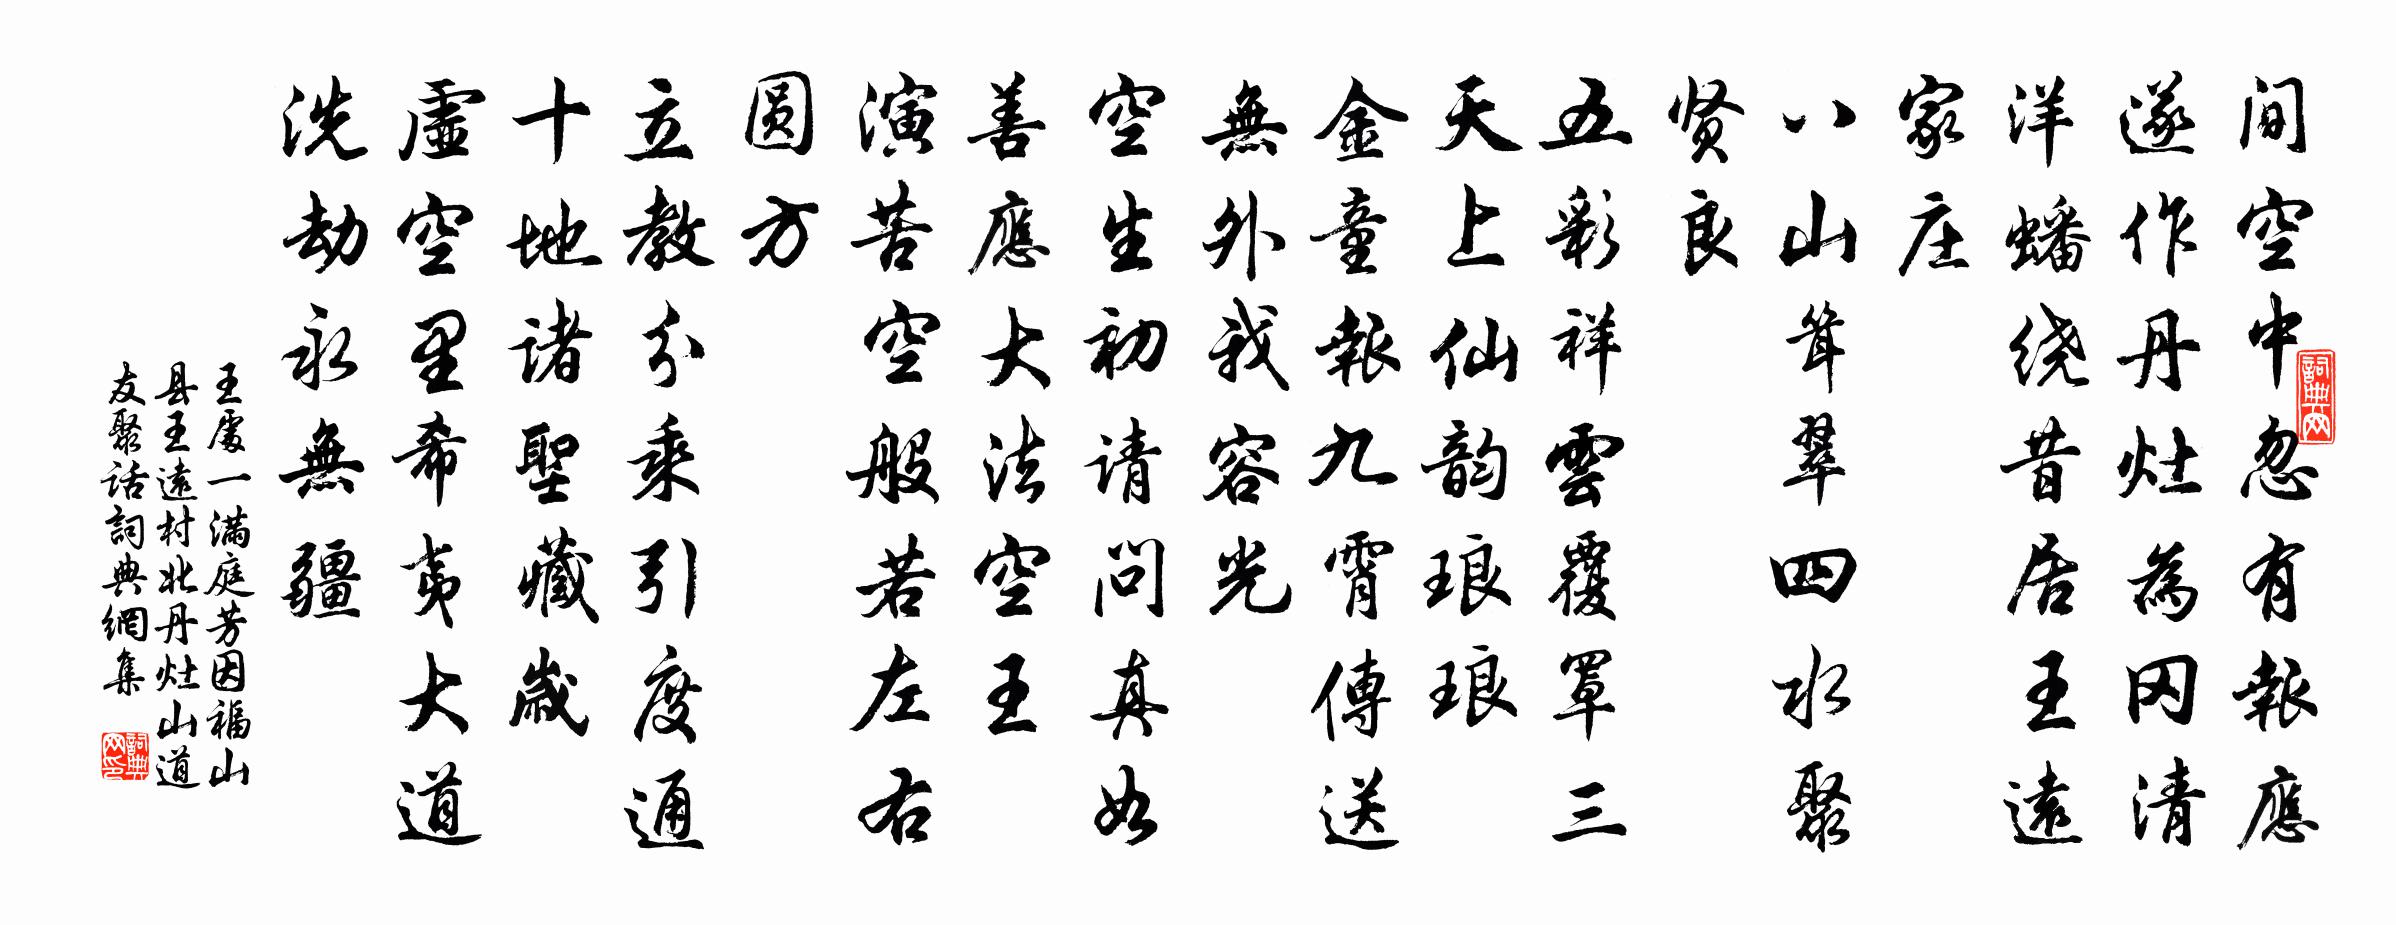 间空中忽有報應
遂作丹灶為冈清
洋蟠绕昔居王遠
家庄
八山耸翠四水聚
贤良
五彩祥雲覆罩三
天上仙韵琅琅
金童報九霄傳送
無外我容光
空生初请问真如
善應大法空王
演苦空般若左右
圆方
立教分乘引度通
十地诸聖藏歲
虛空里希夷大道
洗劫永無疆
王處一满庭芳因福山
县王遠村北丹灶山道
友聚话詞典網集
詞典网
詞典网印